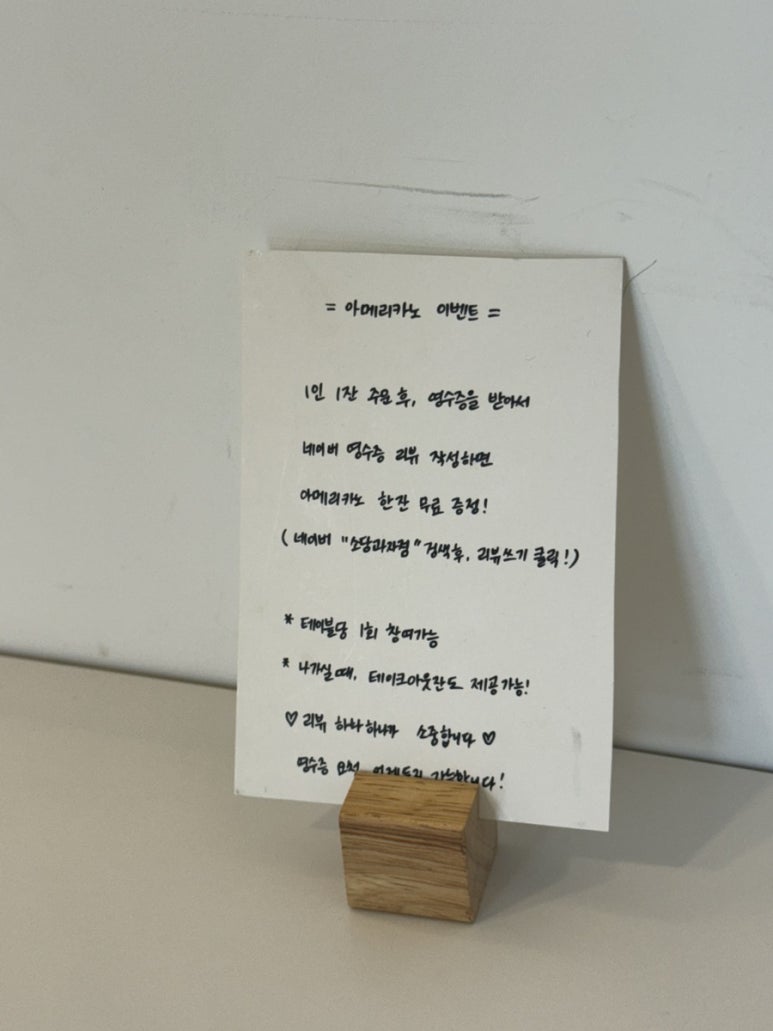 = 아메리카노 이벤트 =
1인 1잔 주문 후, 영수증을 받아서
네이버 영수증 리뷰 작성하면
아메리카노 한잔 무료 증정!
(네이버 "소당과자점" 검색 후, 리뷰쓰기 클릭!)
* 테이블당 1회 참여가능
* 나가실 때, 테이크아웃잔도 제공가능!
♡ 리뷰 하나하나가 소중합니다 ♡
영수증